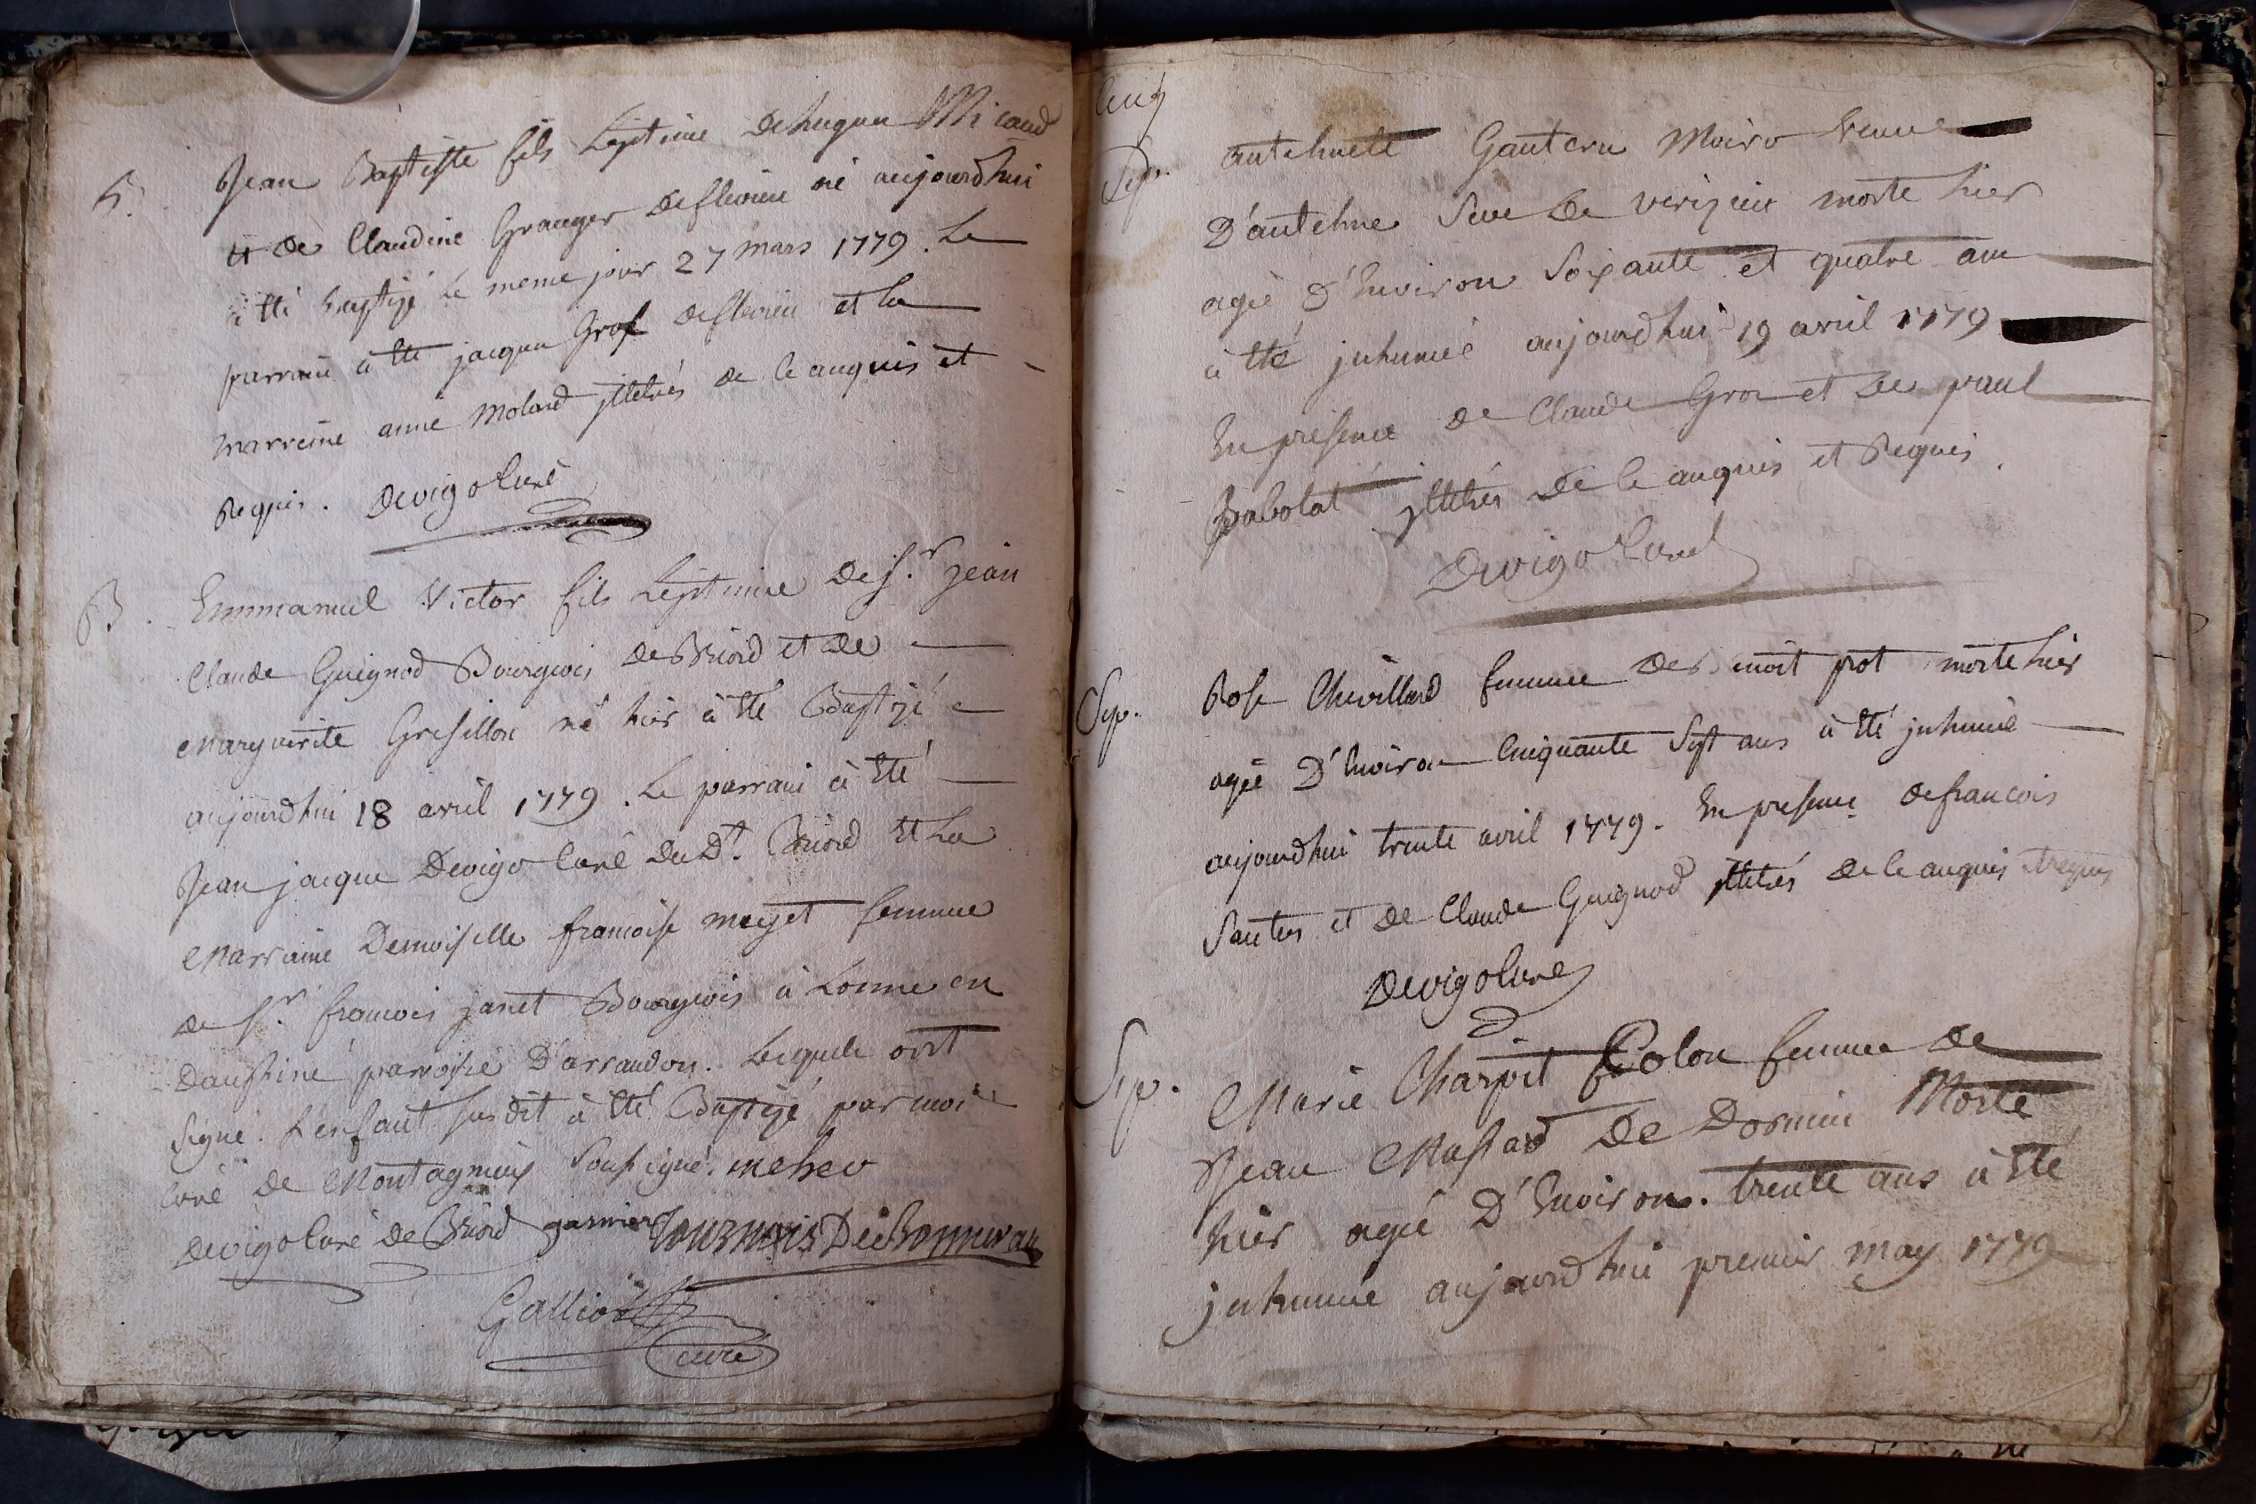 B. Jean Baptiste fils Legitime de hugue Micand
et de Claudine Granger deflevieu né aujourdhui
à tté baptizé le meme jour 27 mars 1779. Le
parrain à tté jacque Grof deflevieu et la
marreine anne Molard jlletrés de ce enquis et
Requis. Devigo Curé
B. Emmanuel Victor fils Legitime de s.r jean
Claude Guignod Bourgeois de Briord et de
Marguerite Gresillon né hier à tté Baptizé
aujourdhui 18 avril 1779. Le parrain à tté
Jean jacque Devigo Curé du Dt. Briord et La
Marraine Demoiselle francoise meyet femme
de s.r francois janet Bourgeois à Lonne en
Dausiné parroisse D'arrandon. Lesquels ont
signé. L'enfant susdit à tté Baptizé par moi
Curé de Montagnieux soussigné.
Devigo Curé de Briord garnier
Gallion
curé
Sep. Gauteru Moiro veuve
D'antehne Seve de verizieu morte hier
agée D'Environ Soixante et quatre ans
à tté jnhumée aujourdhui 19 avril 1779
En presence de Claude Gros et de paul
Babolat jlletrés de ce enquis et Requis.
Devigo Curé
Sep. Rose Chevillard femme de benoit prot morte hier
agée D'Environ Cinquante Sept ans à tté jnhumée
aujourdhui trente avril 1779. En presence de francois
Santus et de Claude Guignod jlletrés de ce enquis et requis
Devigo Curé
Sep. Marie Charpit Colon femme de
Jean Massard De Dornieu Morte
hier agée D'Environ. trente ans à tté
jnhumée aujourdhui premier may 1779